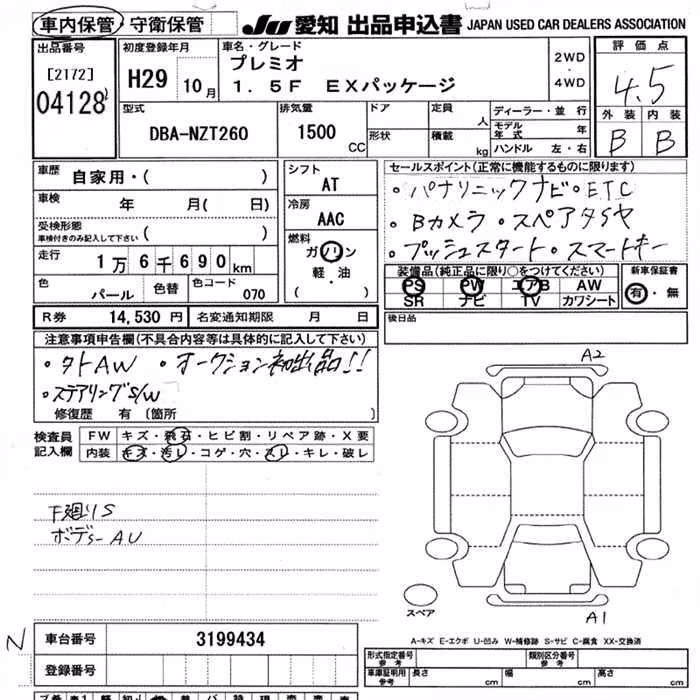 車内保管・守衛保管 JU 愛知 出品申込書 JAPAN USED CAR DEALERS ASSOCIATION
出品番号 初度登録年月 車名・グレード 評価点
[2172] H29 10月 プレミオ 2WD
04128 1.5F EXパッケージ ・4WD 4.5
型式 排気量 ドア 定員 人 ディーラー・並行 外装 内装
DBA-NZT260 1500 CC 形状 積載 kg モデル年式 年 B B
ハンドル 左・右
車歴 自家用・( ) シフト AT セールスポイント(正常に機能するものに限ります)
車検 年 月( 日) 冷房 AAC ・パナソニックナビ・ETC
受検形態 ( ) ・Bカメラ・スペアタイヤ
車検付きのみ記入して下さい
走行 1万6千690km 燃料 ガソリン ・プッシュスタート・スマートキー
軽・油
( )
色 パール 色替 色コード 070 装備品(純正品に限り○をつけてください) 新車保証書
PS PW エアB AW 有・無
SR ナビ TV カワシート
R券 14,530円 名変通知期限 月 日 後日品
注意事項申告欄(不具合内容等は具体的に記入して下さい)
・タトAW ・オークション初出品!!
・ステアリングS/W
修復歴 有 〔箇所 〕
A2
検査員 FW キズ・飛石・ヒビ割・リペア跡・X要
記入欄 内装 キズ・汚レ・コゲ・穴・スレ・キレ・破レ
下廻りS
ボデーAU
スペア
A1
A-キズ E-エクボ U-凹み W-補修跡 S-サビ C-腐食 XX-交換済
N 車台番号 3199434
登録番号
形式指定番号 参考 類別区分番号 参考
車庫証明用 参考 長さ cm 幅 cm 高さ cm